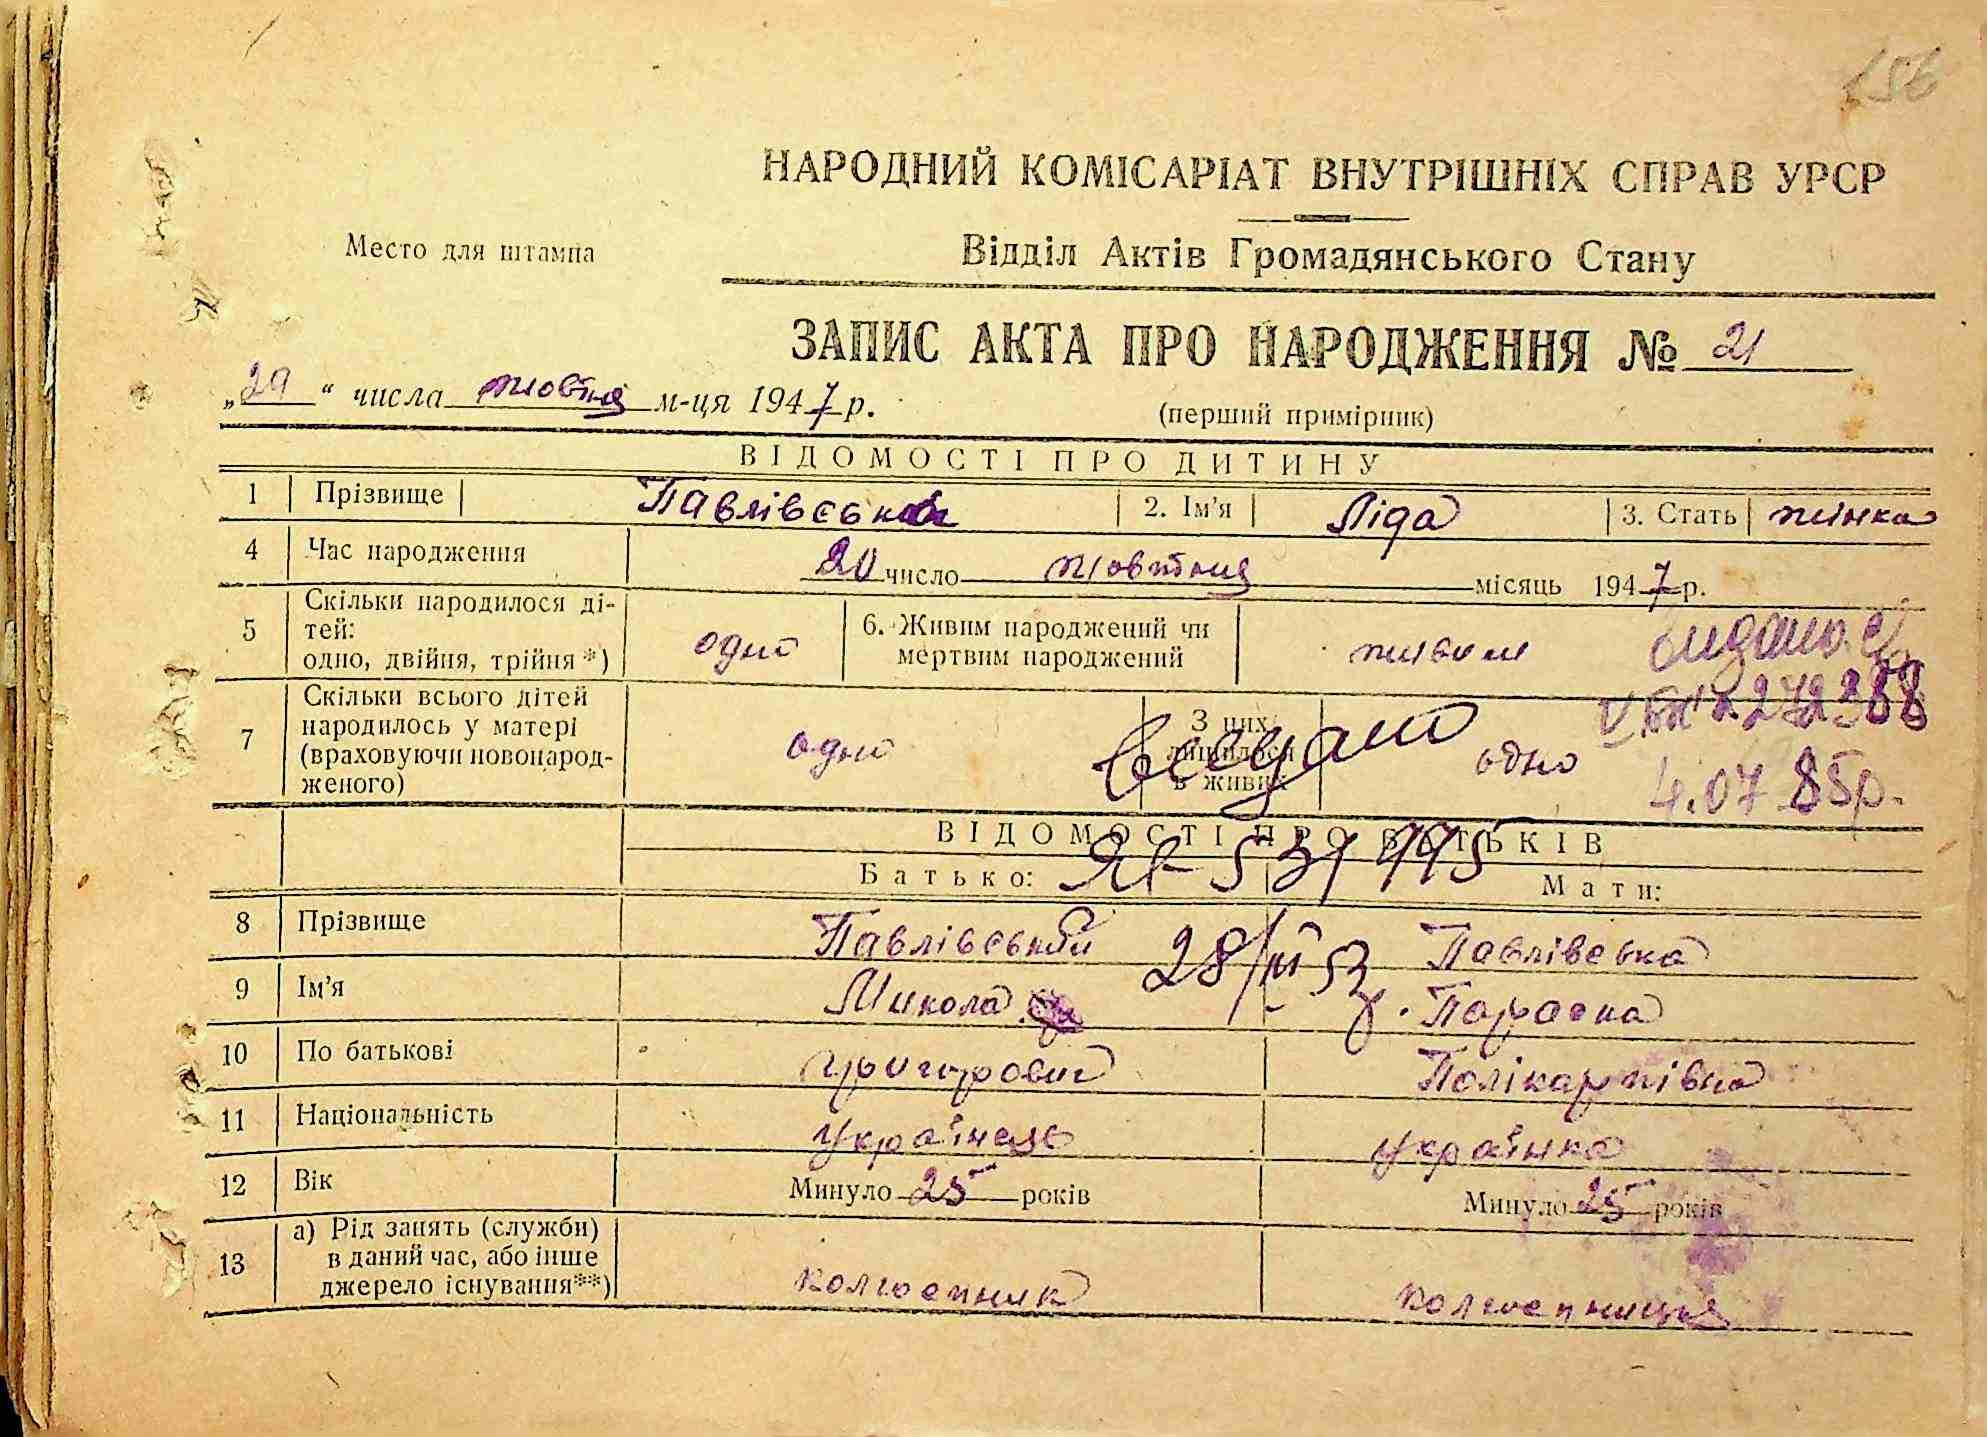 156
НАРОДНИЙ КОМІСАРІАТ ВНУТРІШНІХ СПРАВ УРСР
Место для штампа
Відділ Актів Громадянського Стану
ЗАПИС АКТА ПРО НАРОДЖЕННЯ № 21
„29“ числа жовтня м-ця 1947 р.
(перший примірник)
ВІДОМОСТІ ПРО ДИТИНУ
1 Прізвище Павлівська 2. Ім'я Ліда 3. Стать жінка
4 Час народження 20 число жовтня місяць 1947 р.
5 Скільки народилося ді-
тей:
одно, двійня, трійня *) одно 6. Живим народжений чи
мертвим народжений живим
видано
272388
4.07 85р.
7 Скільки всього дітей
народилось у матері
(враховуючи новонарод-
женого) одно З них
лишилося
в живих одно
ВІДОМОСТІ ПРО БАТЬКІВ
Батько: Мати:
531775
28/ІІІ 53
8 Прізвище Павлівський Павлівська
9 Ім'я Микола Параска
10 По батькові Григорович Полікарпівна
11 Національність українець українка
12 Вік Минуло 25 років Минуло 25 років
13 а) Рід занять (служби)
в даний час, або інше
джерело існування**) колгоспник колгоспниця